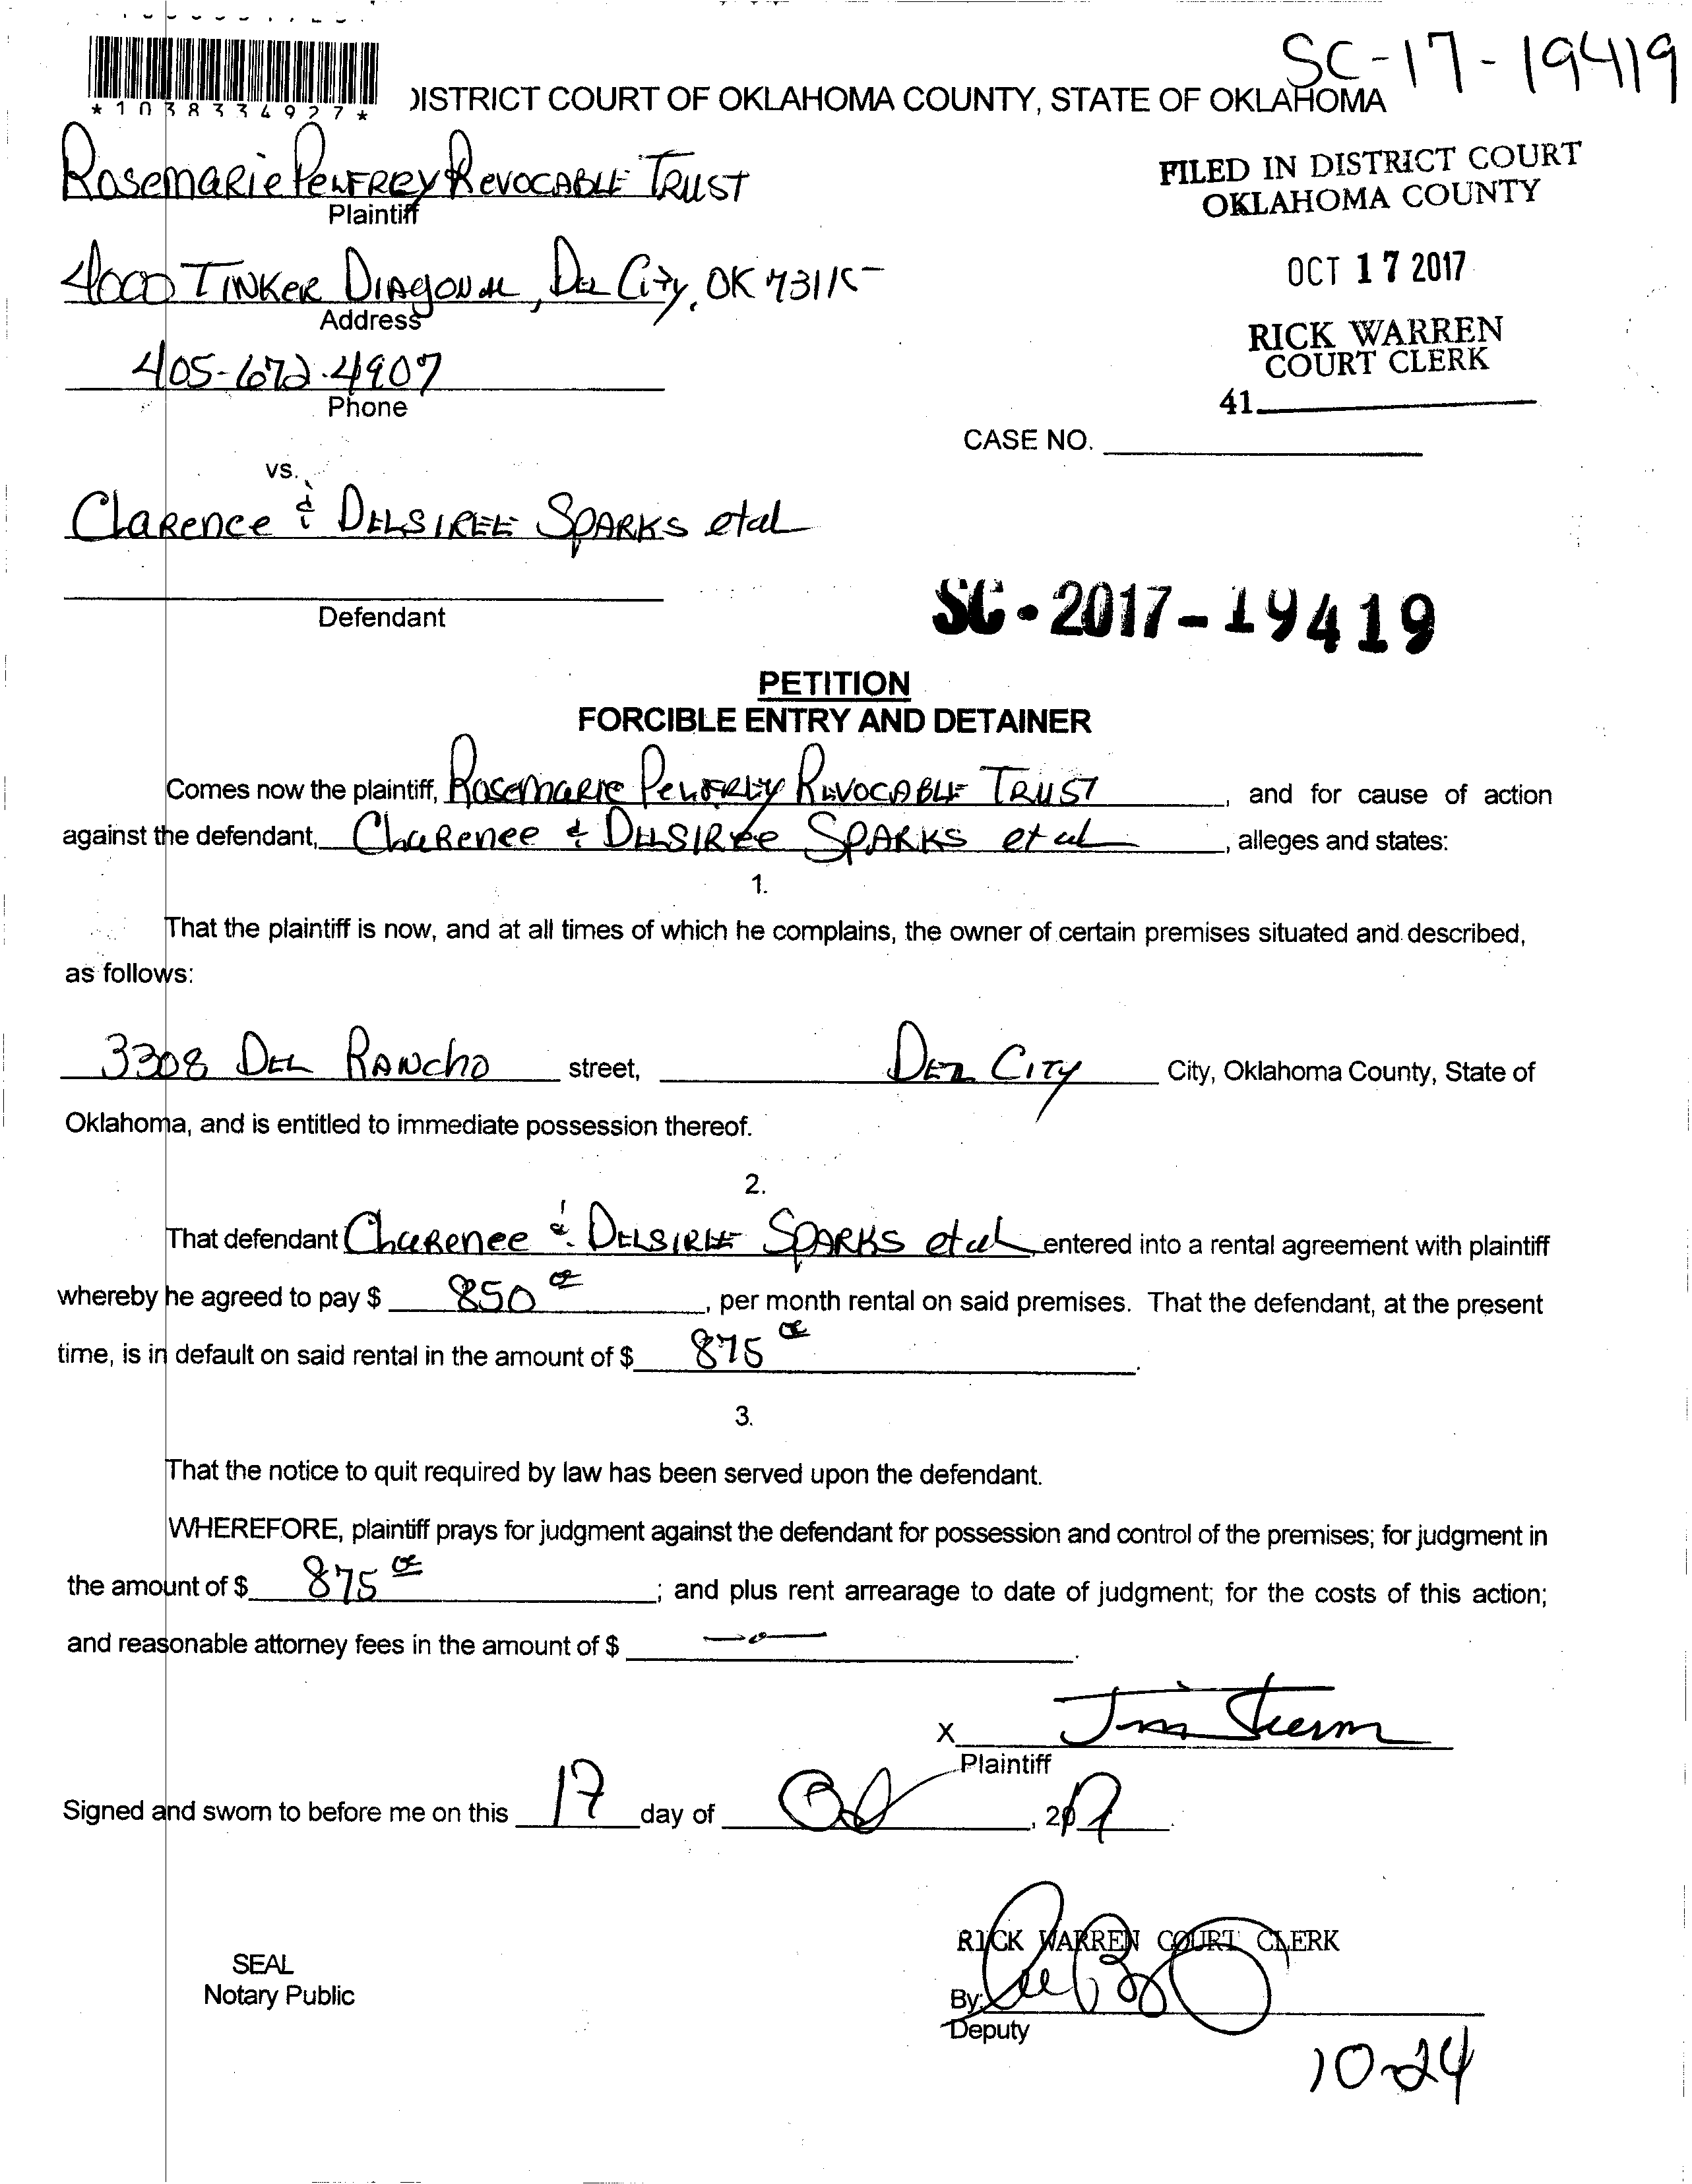 SC-17-19419
*1038334927*
DISTRICT COURT OF OKLAHOMA COUNTY, STATE OF OKLAHOMA
Rosemarie Penfrey Revocable Trust
Plaintiff
FILED IN DISTRICT COURT
OKLAHOMA COUNTY
4000 Tinker Diagonal, Del City, OK 73115
Address
OCT 17 2017
405-672-4907
Phone
RICK WARREN
COURT CLERK
41.
CASE NO.
vs.
Clarence & Delsiree Sparks etal
Defendant
SC-2017-19419
PETITION
FORCIBLE ENTRY AND DETAINER
Comes now the plaintiff, Rosemarie Penfrey Revocable Trust, and for cause of action
against the defendant, Clarence & Delsiree Sparks et al, alleges and states:
1.
That the plaintiff is now, and at all times of which he complains, the owner of certain premises situated and described,
as follows:
3308 Del Rancho street, Del City City, Oklahoma County, State of
Oklahoma, and is entitled to immediate possession thereof.
2.
That defendant Clarence & Delsiree Sparks et al entered into a rental agreement with plaintiff
whereby he agreed to pay $ 850, per month rental on said premises. That the defendant, at the present
time, is in default on said rental in the amount of $ 875.
3.
That the notice to quit required by law has been served upon the defendant.
WHEREFORE, plaintiff prays for judgment against the defendant for possession and control of the premises; for judgment in
the amount of $ 875; and plus rent arrearage to date of judgment; for the costs of this action;
and reasonable attorney fees in the amount of $ —0—.
X
Plaintiff
Signed and sworn to before me on this 17 day of Oct, 2017.
RICK WARREN COURT CLERK
SEAL
Notary Public
By:
Deputy
10-24